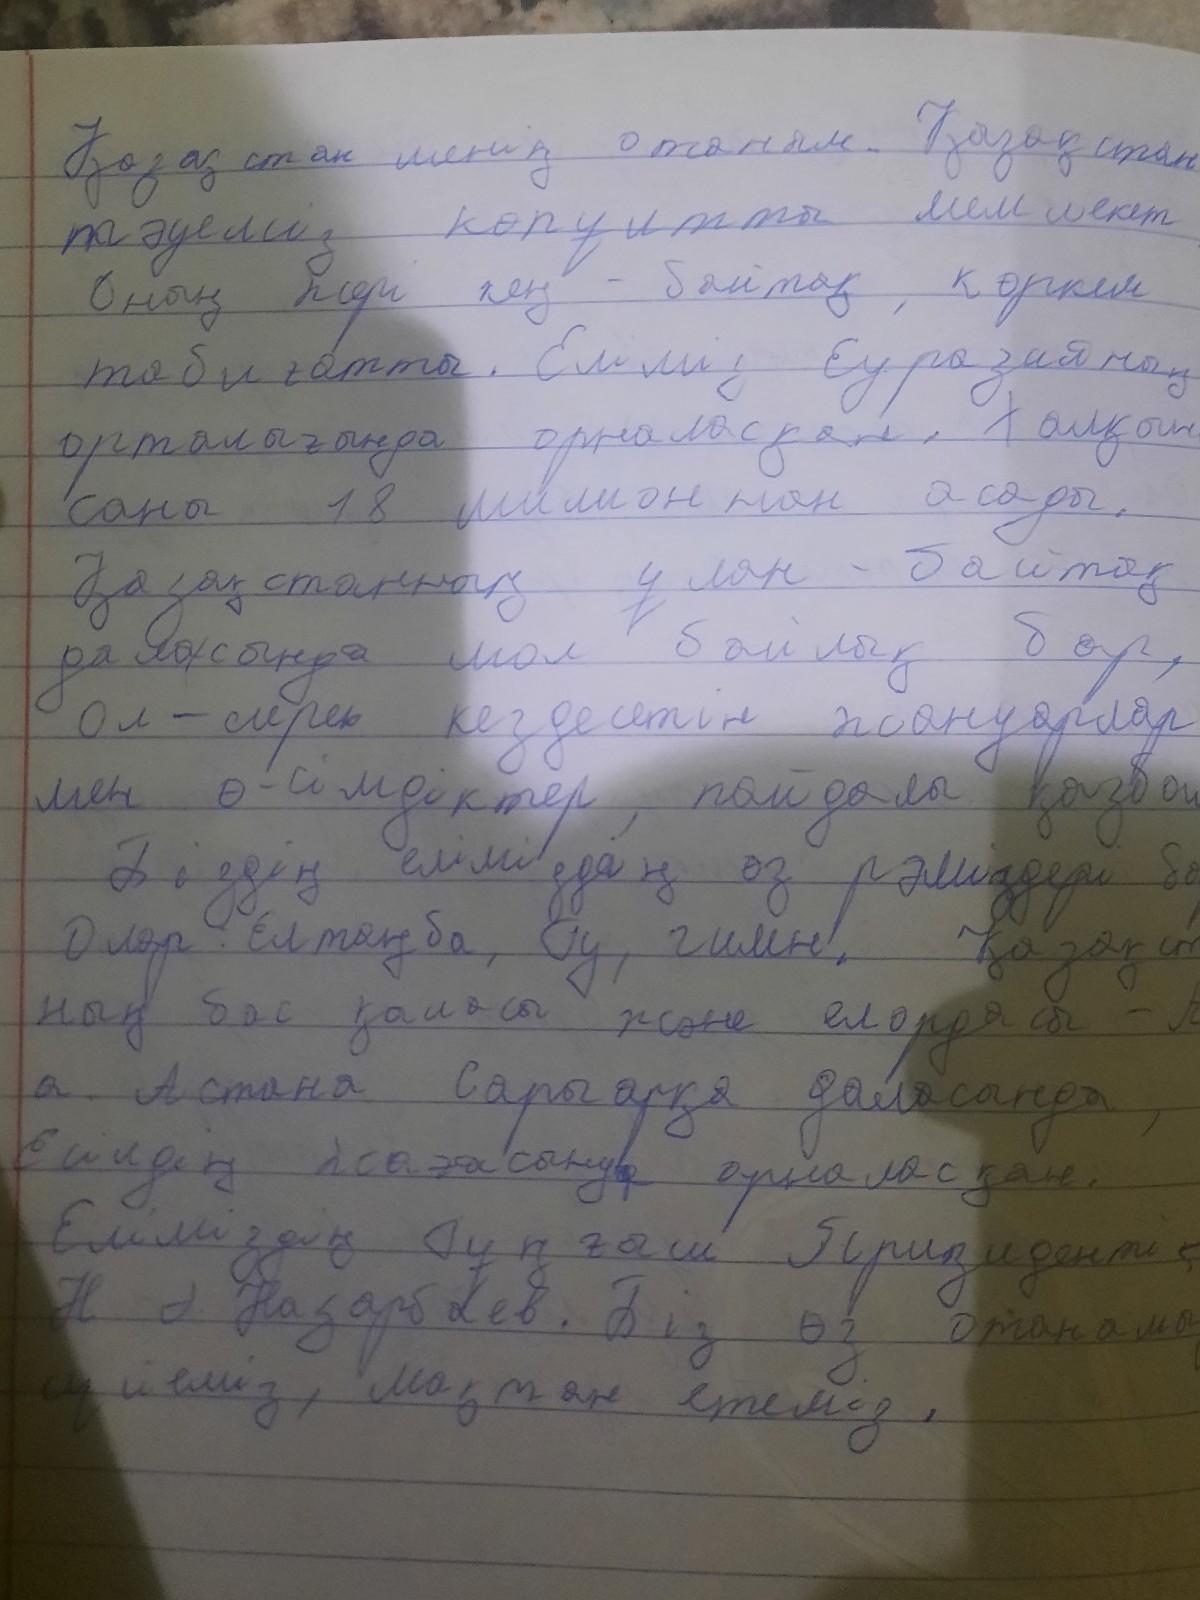 Қазақстан менің отаным. Қазақстан
тәуелсіз көпұлтты мемлекет
Оның жері кең - байтақ, көркем
табиғатты. Еліміз Еуразияның
орталығында орналасқан. Халқын
саны 18 милионнан асады.
Қазақстанның ұлан - байтақ
даласында мол байлық бар,
Ол - сирек кездесетін жануарлар
мен ө-сімдіктер, пайдалы қазбал
Біздің еліміздің өз рәміздері ба
Олар: Елтаңба, Ту, гимн. Қазақст
ның бас қаласы және елордасы - А
а. Астана Сарыарқа даласында,
Есілдің жағасында орналасқан.
Еліміздің Тұңғыш Призиденті
Н Ә Назарбаев. Біз өз отанамы
сүйеміз, мақтан етеміз.